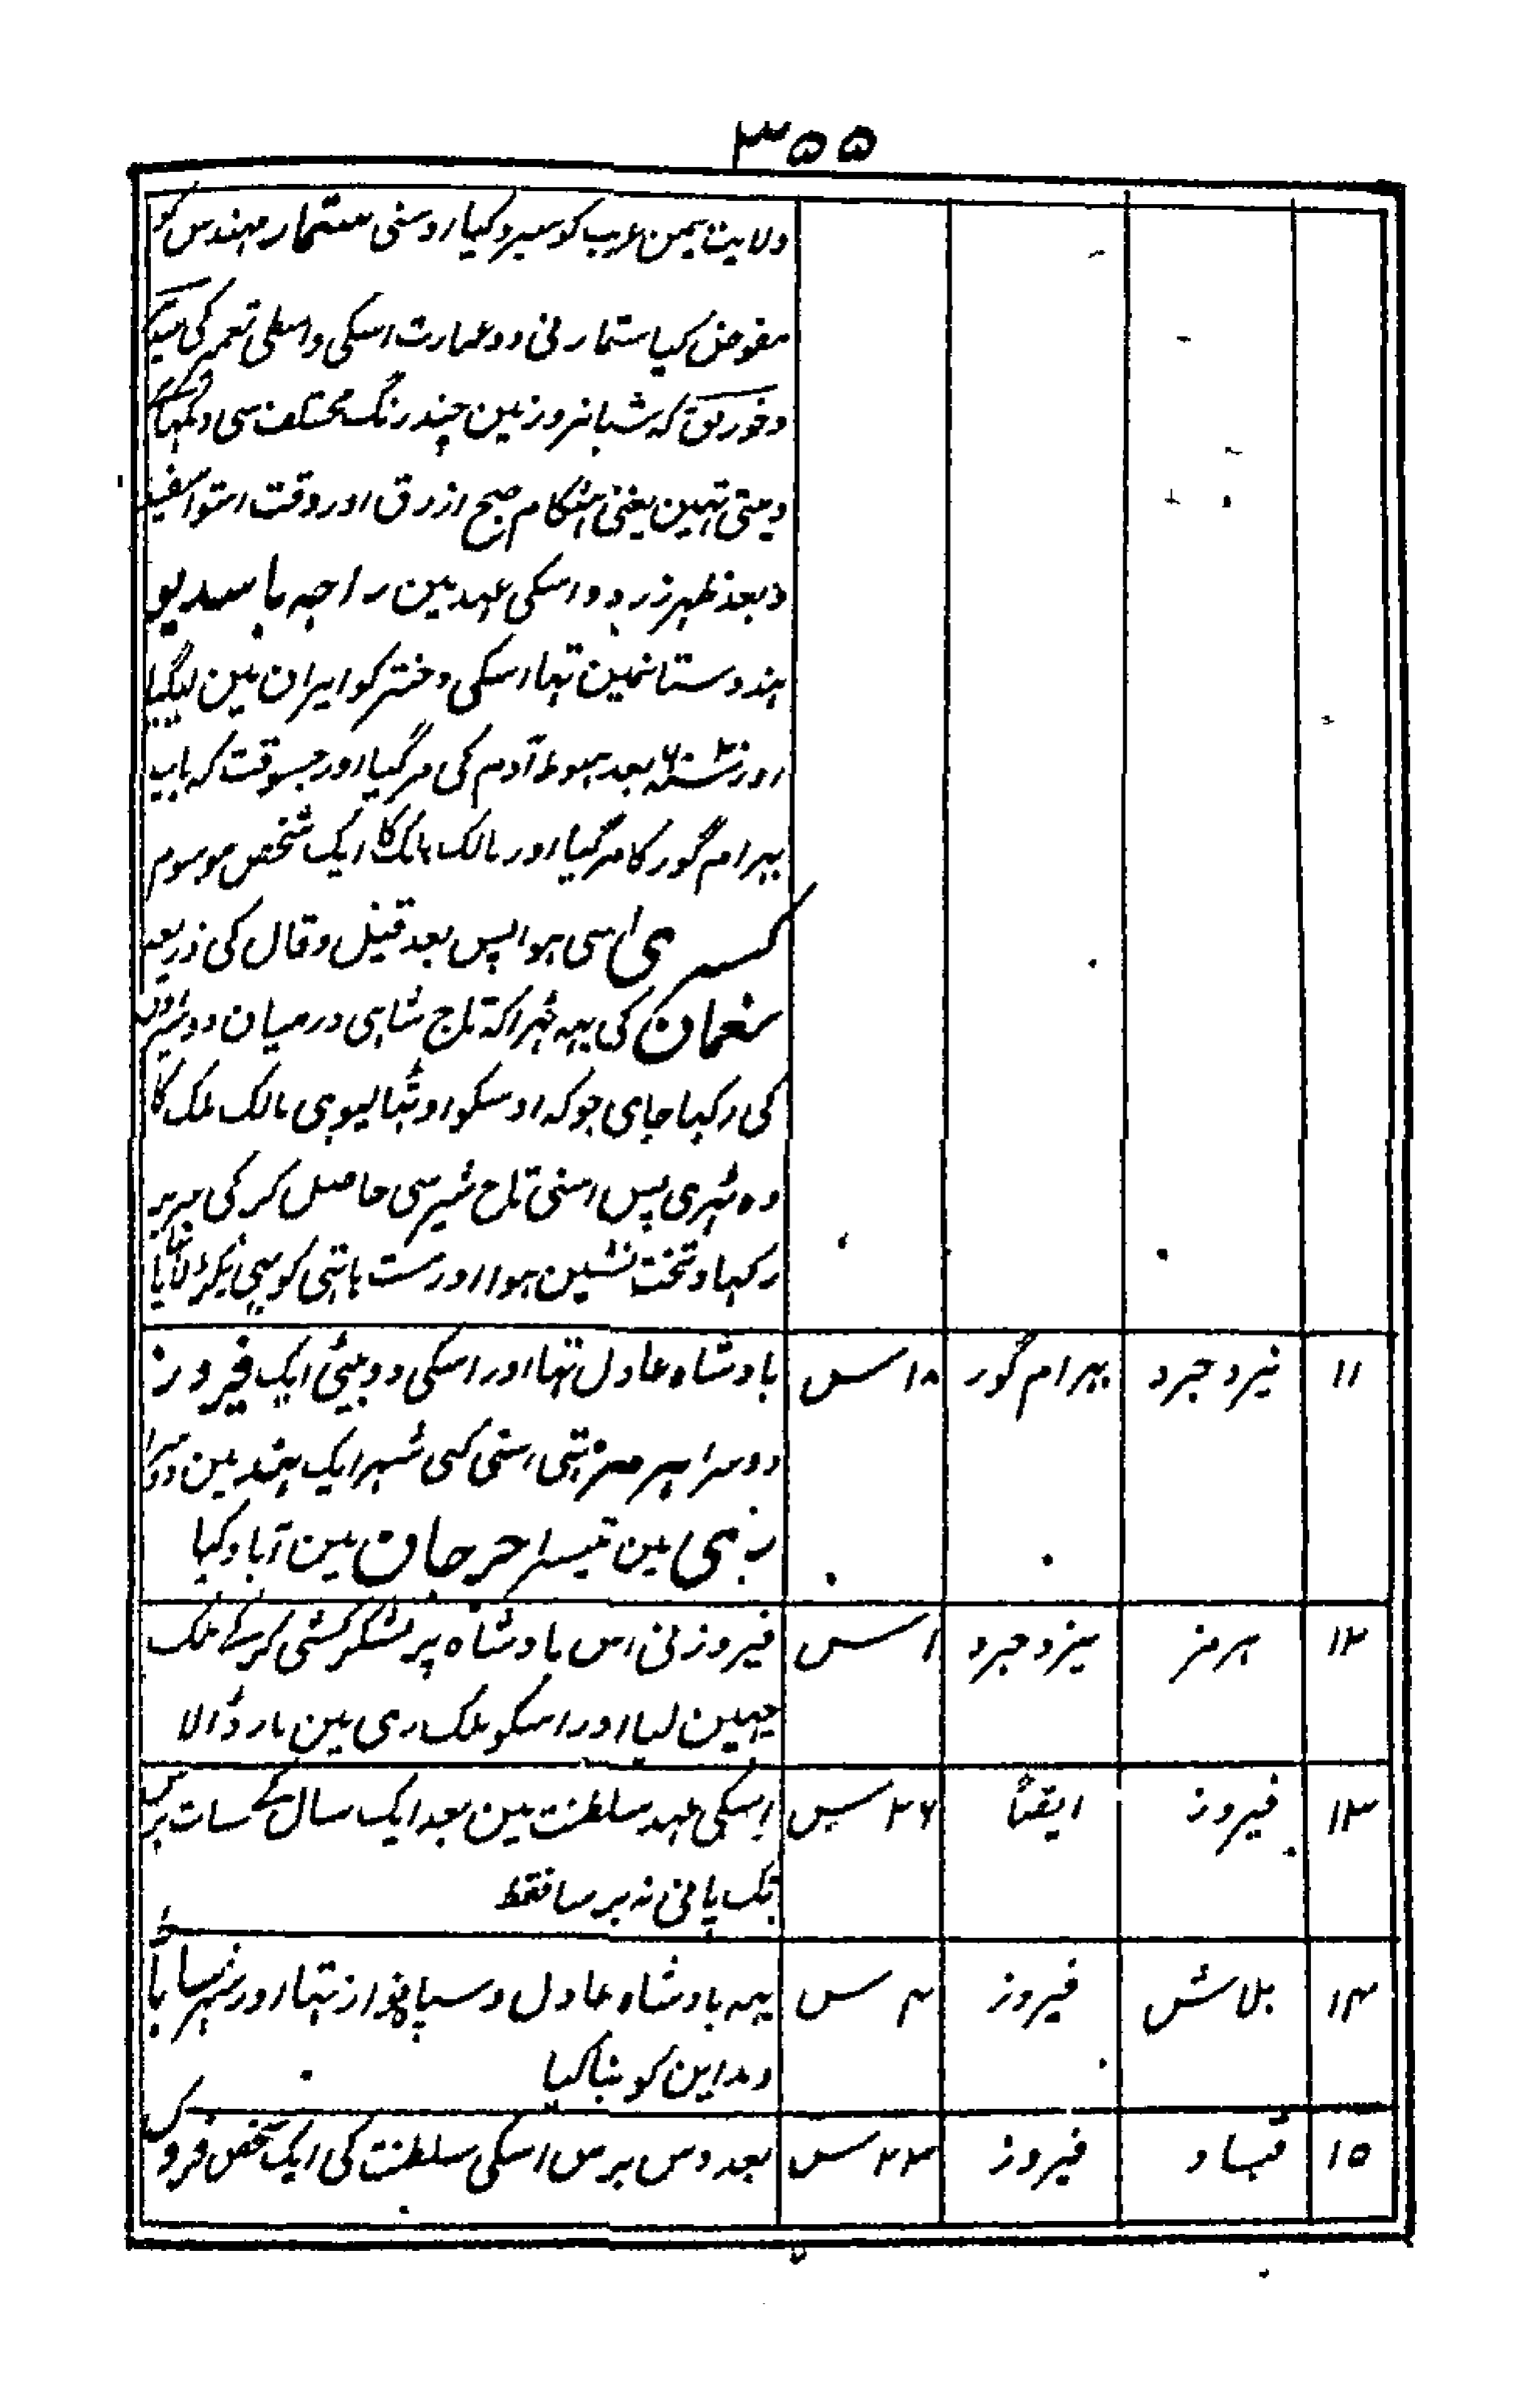 ۳۵۵
ولایت یمن عرب کو سپرد کیا اوسنی ستمار مہندس کو
مفوض کیا ستمار نی دو عمارت اسکی واسطی تعمیر کی
وخورنق کہ شبانروز مین چند رنگ مختلف سی دکھائی
دیتی تہین یعنی ہنگام صبح ازرق اور وقت استوا سفید
و بعد ظہر زرد و اسکی عہد مین راجہ باسدیو
ہندوستانمین تہا اسکی دختر کو ایران مین لیگیا
اور بعد ہبوط آدم کی مر گیا اور جسوقت کہ باپ
بہرام گور کا مر گیا اور مالک ملک کا ایک شخص موسوم
کسری اسی ہوا پس بعد قیل وقال کی ذریعہ
نعمان کی یہہ ٹہرا کہ تاج شاہی درمیان دو شیرون
کی رکہا جای جو کہ اوسکو اوٹہا لیوی مالک ملک کا
وہ ٹہری پس اسنی تاج شیر سی حاصل کر کی سر پر
رکہا و تخت نشین ہوا اور مست ہاتہی کو بہی پکڑ لایا تہا
۱۱ یزد جرد بہرام گور ۱۸ س بادشاہ عادل تہا اور اسکی دو بیٹی ایک فیروز
دوسرا ہرمز تہی اسنی کئی شہر ایک ہند مین دوسرا
ری مین تیسرا جرجان مین آباد کیا
۱۲ ہرمز یزد جرد ۱ س فیروز نی اس بادشاہ پر لشکر کشی کر کے ملک
چہین لیا اور اسکو ملک ری مین مار ڈالا
۱۳ فیروز ایضاً ۲۶ س اسکی عہد سلطنت مین بعد ایک سال کے سات برس
تک پانی نہ برسا فقط
۱۴ بلاش فیروز ۴ س یہہ بادشاہ عادل و سپاہ نواز تہا اور شہر
و مداین کو بنا کیا
۱۵ قباد فیروز ۲۳ س بعد دس برس اسکی سلطنت کی ایک شخص